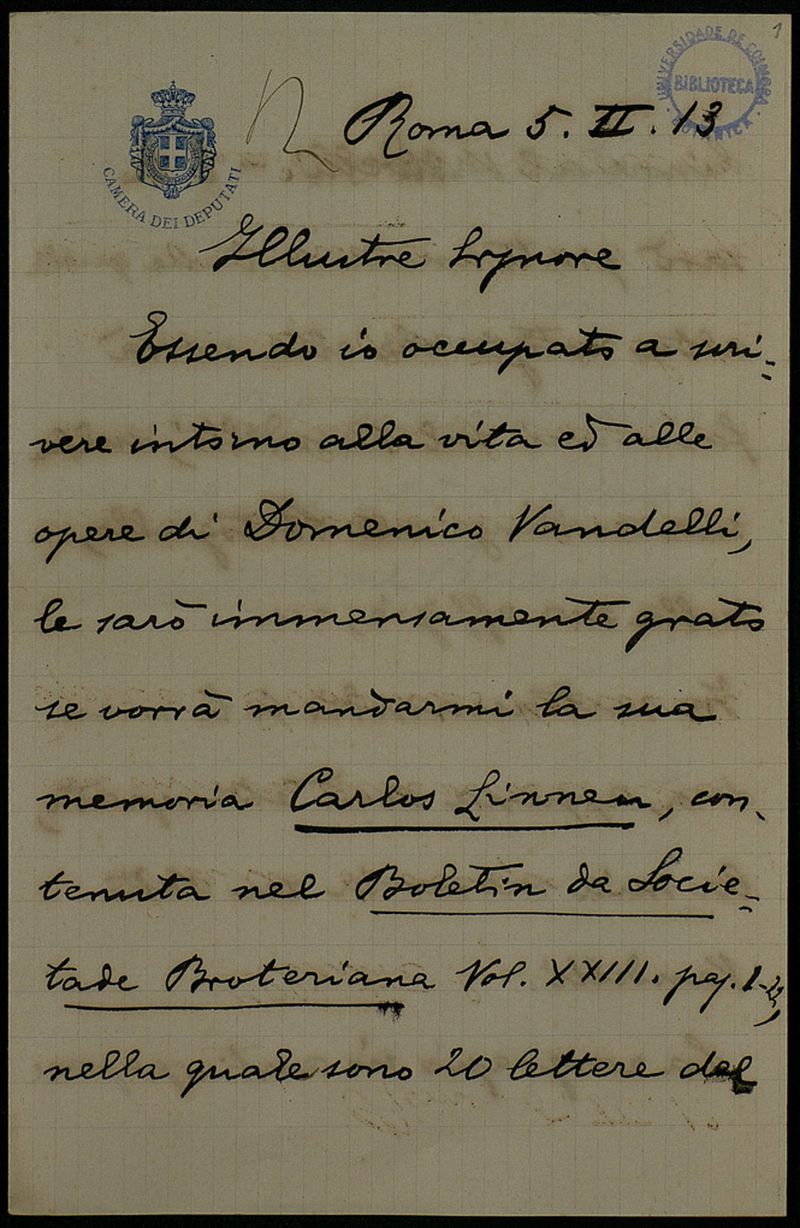 1
UNIVERSIDADE DE COIMBRA
BIBLIOTECA
BOTANICA
CAMERA DEI DEPUTATI
Roma 5. II. 13
Illustre Signore
Essendo io occupato a scri-
vere intorno alla vita ed alle
opere di Domenico Vandelli,
le sarò immensamente grato
se vorrà mandarmi la sua
memoria Carlos Linneu, con-
tenuta nel Boletin da Socie-
tade Broteriana Vol. XXIII. pag. 1-
nella quale sono 20 lettere del